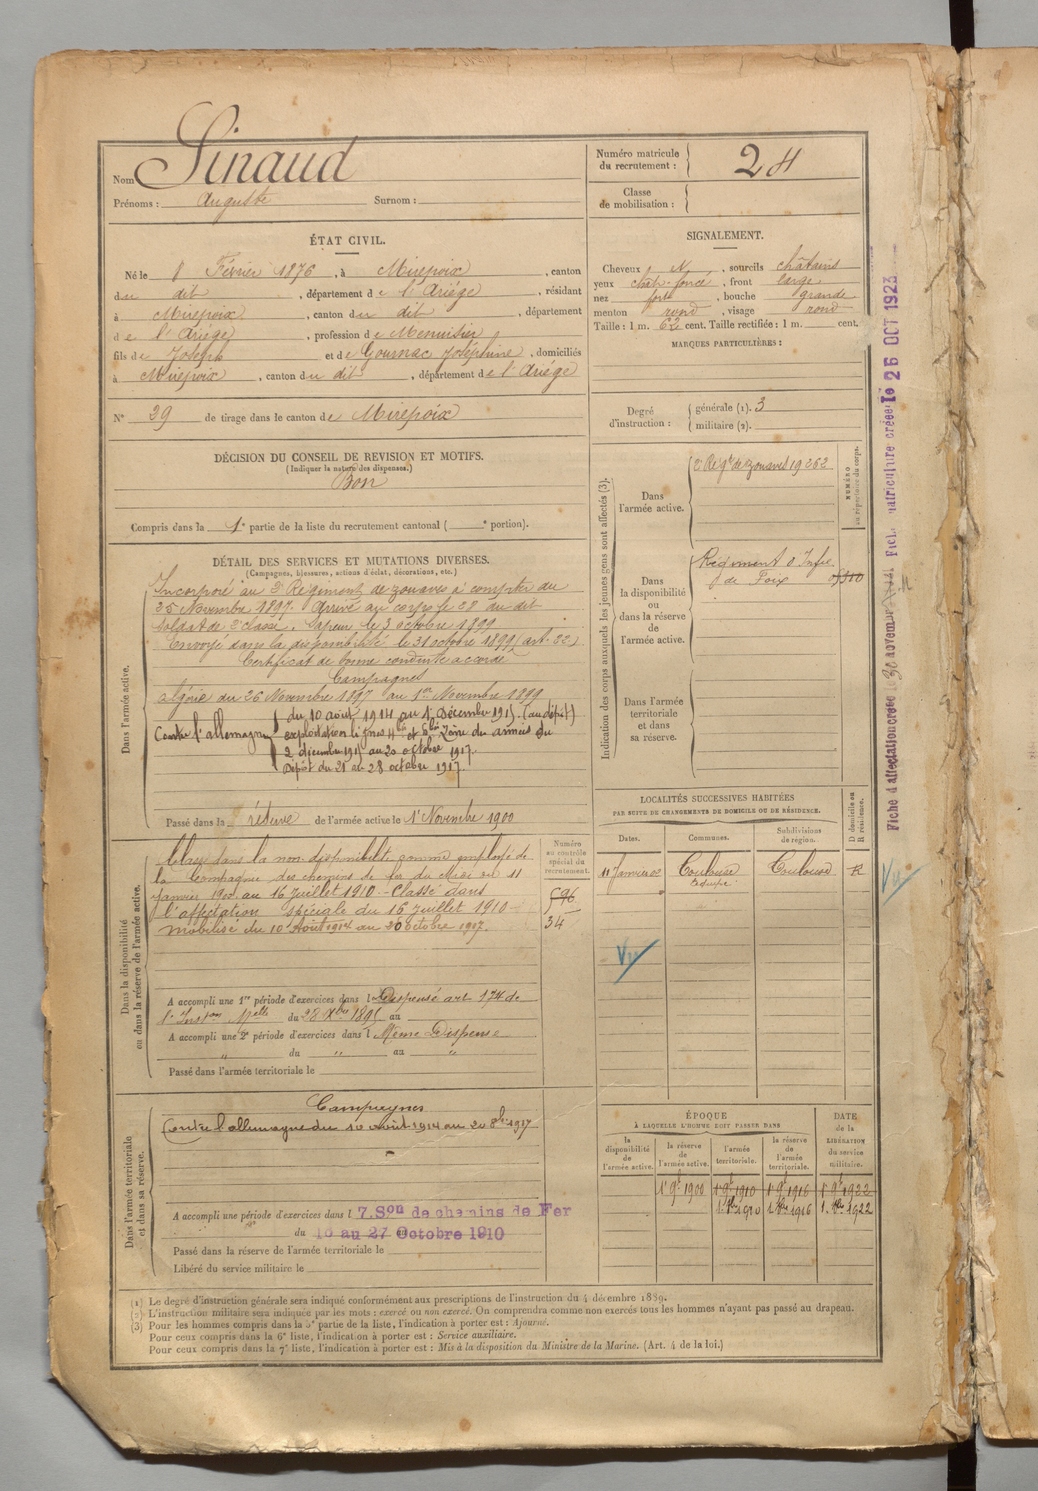 Nom Sinaud
Prénoms : Auguste Surnom :
Numéro matricule du recrutement : 24
Classe de mobilisation :
ÉTAT CIVIL.
Né le 8 Février 1876, à Mirepoix, canton
du dit, département de l'Ariége, résidant
à Mirepoix, canton du dit, département
de l'Ariége, profession de Menuisier
fils de Joseph et de Gournac Joséphine, domiciliés
à Mirepoix, canton du dit, département de l'Ariége
N° 39 de tirage dans le canton de Mirepoix
DÉCISION DU CONSEIL DE REVISION ET MOTIFS.
(Indiquer la nature des dispenses.)
Bon
Compris dans la 1e partie de la liste du recrutement cantonal ( e portion).
SIGNALEMENT.
Cheveux N, sourcils châtains
yeux chât. foncé, front large
nez fort, bouche grande
menton rond, visage rond
Taille : 1 m. 62 cent. Taille rectifiée : 1 m. cent.
MARQUES PARTICULIÈRES :
Degré d'instruction : générale (1). 3
militaire (2).
DÉTAIL DES SERVICES ET MUTATIONS DIVERSES.
(Campagnes, blessures, actions d'éclat, décorations, etc.)
Dans l'armée active.
Incorporé au 2e Régiment de zouaves à compter du
25 Novembre 1897. Arrivé au corps le 28 du dit
Soldat de 2e classe. Sapeur le 3 octobre 1899
Envoyé dans la disponibilité le 31 octobre 1899 (art. 22)
Certificat de bonne conduite accordé
Campagnes
Algérie du 26 Novembre 1897 au 1er Novembre 1899
Contre l'allemagne du 10 août 1914 au 1er Décembre 1915. (au dépôt)
exploitation lignes 4bis et 5bis Zone du armées du
2 décembre 1915 au 20 octobre 1917.
Dépôt du 21 au 28 octobre 1917.
Passé dans la réserve de l'armée active le 1er Novembre 1900
Indication des corps auxquels les jeunes gens sont affectés (3).
NUMÉRO au répertoire du corps.
Dans l'armée active. 2e Régt de zouaves 19262
Dans la disponibilité ou dans la réserve de l'armée active. Régiment d'Infie
de Foix
Dans l'armée territoriale et dans sa réserve.
Dans la disponibilité ou dans la réserve de l'armée active.
Numéro au contrôle spécial du recrutement.
Classé dans la non-disponibilité comme employé de
la Compagnie des chemins de fer du Midi du 11
Janvier 1900 au 16 Juillet 1910 - Classé dans
l'affectation spéciale du 16 Juillet 1910
mobilisé du 10 Août 1914 au 20 octobre 1917.
596
34
A accompli une 1re période d'exercices dans l Dispensé art. 174 de
l'Inston Mielle du 28 Xbre 1895 au
A accompli une 2e période d'exercices dans l Même Dispense
" du " au "
Passé dans l'armée territoriale le
LOCALITÉS SUCCESSIVES HABITÉES
PAR SUITE DE CHANGEMENTS DE DOMICILE OU DE RÉSIDENCE.
Dates. Communes. Subdivisions de région. D domicile ou R résidence.
11 Janvier 00 Toulouse Toulouse R
Vu
Vu
Dans l'armée territoriale et dans sa réserve.
Campagnes
Contre l'allemagne du 10 août 1914 au 20 8bre 1917
A accompli une période d'exercices dans l 7.Son de chemins de Fer
du 16 au 27 Octobre 1910
Passé dans la réserve de l'armée territoriale le
Libéré du service militaire le
ÉPOQUE
À LAQUELLE L'HOMME DOIT PASSER DANS
DATE de la LIBÉRATION du service militaire.
la disponibilité de l'armée active. la réserve de l'armée active. l'armée territoriale. la réserve de l'armée territoriale.
1er 9bre 1900 1er 9bre 1910 1er 9bre 1916 1er 9bre 1922
1. 8bre 1910 1. 8bre 1916 1. 8bre 1922
(1) Le degré d'instruction générale sera indiqué conformément aux prescriptions de l'instruction du 4 décembre 1889.
(2) L'instruction militaire sera indiquée par les mots : exercé ou non exercé. On comprendra comme non exercés tous les hommes n'ayant pas passé au drapeau.
(3) Pour les hommes compris dans la 5e partie de la liste, l'indication à porter est : Ajourné.
Pour ceux compris dans la 6e liste, l'indication à porter est : Service auxiliaire.
Pour ceux compris dans la 7e liste, l'indication à porter est : Mis à la disposition du Ministre de la Marine. (Art. 4 de la loi.)
Fiche d'affectation créée le 30 novembre
Fiche matriculture créée le 26 OCT 1923